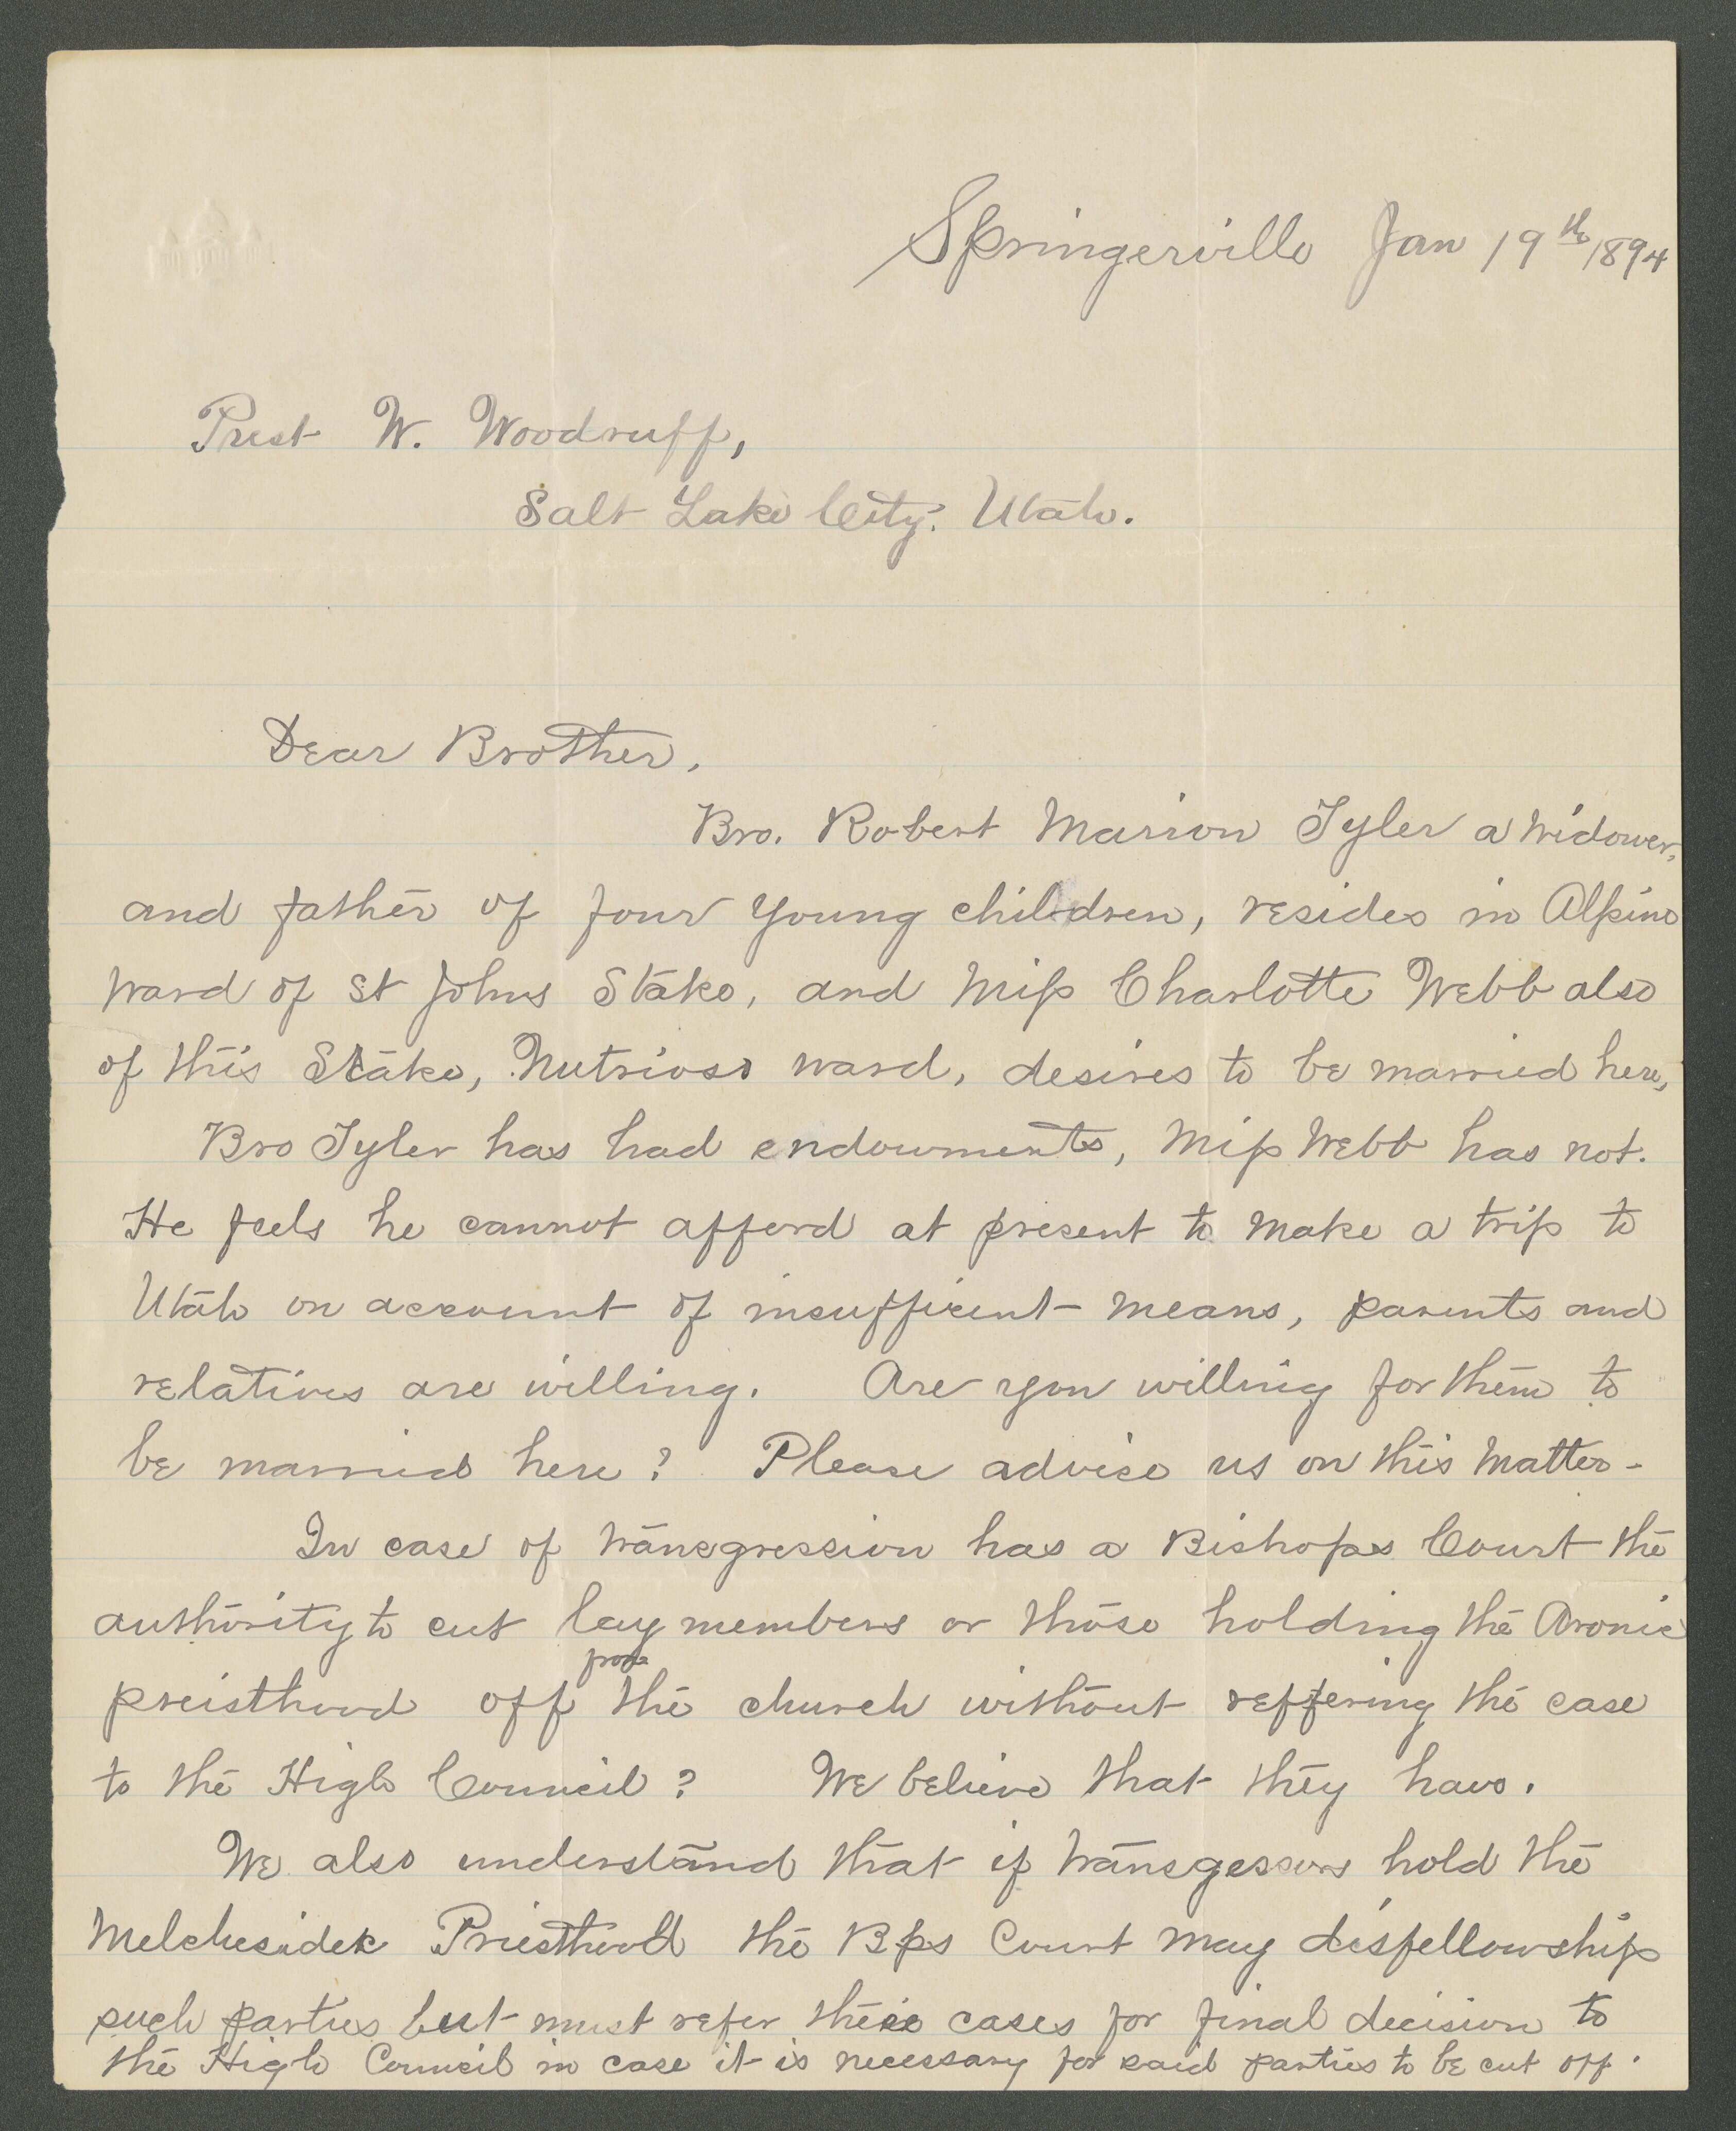 Springerville Jan 19th 1894
Prest W. Woodruff,
Salt Lake City. Utah.
Dear Brother,
Bro. Robert Marion Tyler a widower,
and father of four young children, resides in Alpine
ward of St Johns Stake, and Miss Charlotte Webb also
of this Stake, Nutrioso ward, desires to be married here,
Bro Tyler has had endowments, Miss Webb has not.
He feels he cannot afford at present to make a trip to
Utah on account of insufficent means, parents and
relatives are willing. Are you willing for them to
be married here? Please advise us on this matter-
In case of transgression has a Bishops Court the
authority to cut lay members or those holding the Aronic
from
preisthood off the church without reffering the case
to the High Council? We believe that they have.
We also understand that if transgessors hold the
Melchesidek Priesthood the Bps Court may disfellowship
such parties but must refer their cases for final decision to
the High Council in case it is necessary for said parties to be cut off.